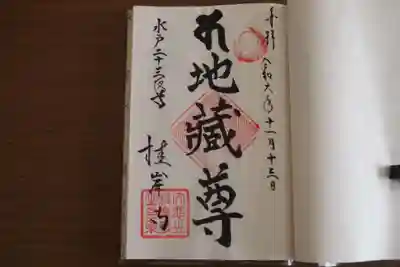 奉拝 令和六年十一月十三日
地藏尊
水戸二十三夜
桂岸寺